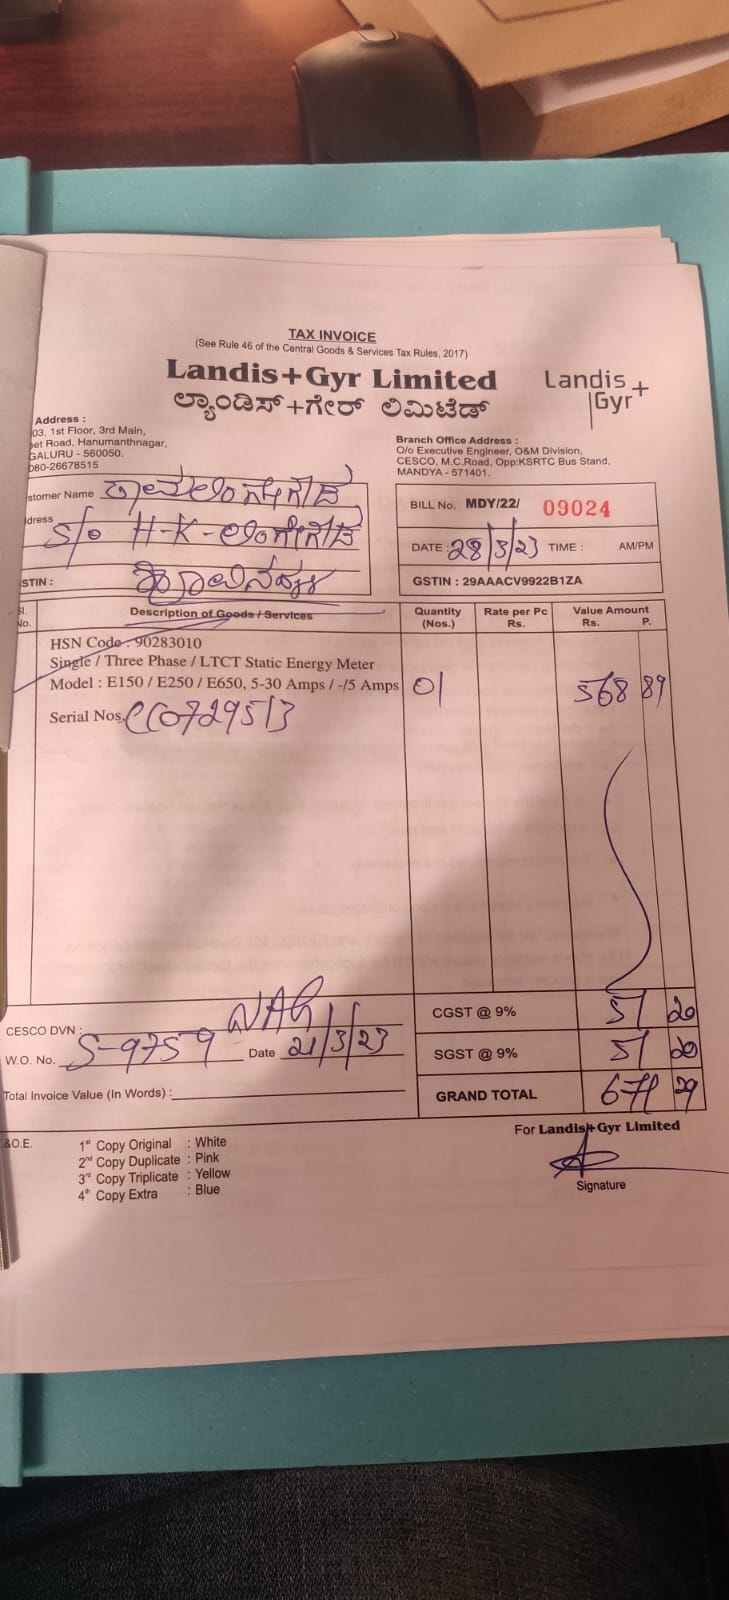 TAX INVOICE
(See Rule 46 of the Central Goods & Services Tax Rules, 2017)
Landis+Gyr Limited
ಲ್ಯಾಂಡಿಸ್+ಗೇರ್ ಲಿಮಿಟೆಡ್
Landis+
Gyr
Address :
03, 1st Floor, 3rd Main,
et Road, Hanumanthnagar,
GALURU - 560050.
080-26678515
Branch Office Address :
O/o Executive Engineer, O&M Division,
CESCO, M.C.Road, Opp:KSRTC Bus Stand,
MANDYA - 571401.
stomer Name ರಾಮಲಿಂಗೇಗೌಡ
dress S/o H-K-ಲಿಂಗೇಗೌಡ
STIN :
BILL No. MDY/22/ 09024
DATE : 28/3/23 TIME : AM/PM
GSTIN : 29AAACV9922B1ZA
Sl. No. Description of Goods / Services Quantity (Nos.) Rate per Pc Rs. Value Amount Rs. P.
HSN Code : 90283010
Single / Three Phase / LTCT Static Energy Meter
Model : E150 / E250 / E650, 5-30 Amps / -/5 Amps 01 568 89
Serial Nos. CC0729513
CESCO DVN :
W.O. No. S-9759 Date 21/3/23
Total Invoice Value (In Words) :
CGST @ 9% 51 20
SGST @ 9% 51 20
GRAND TOTAL 671 29
For Landis+Gyr Limited
Signature
&O.E.
1st Copy Original : White
2nd Copy Duplicate : Pink
3rd Copy Triplicate : Yellow
4th Copy Extra : Blue